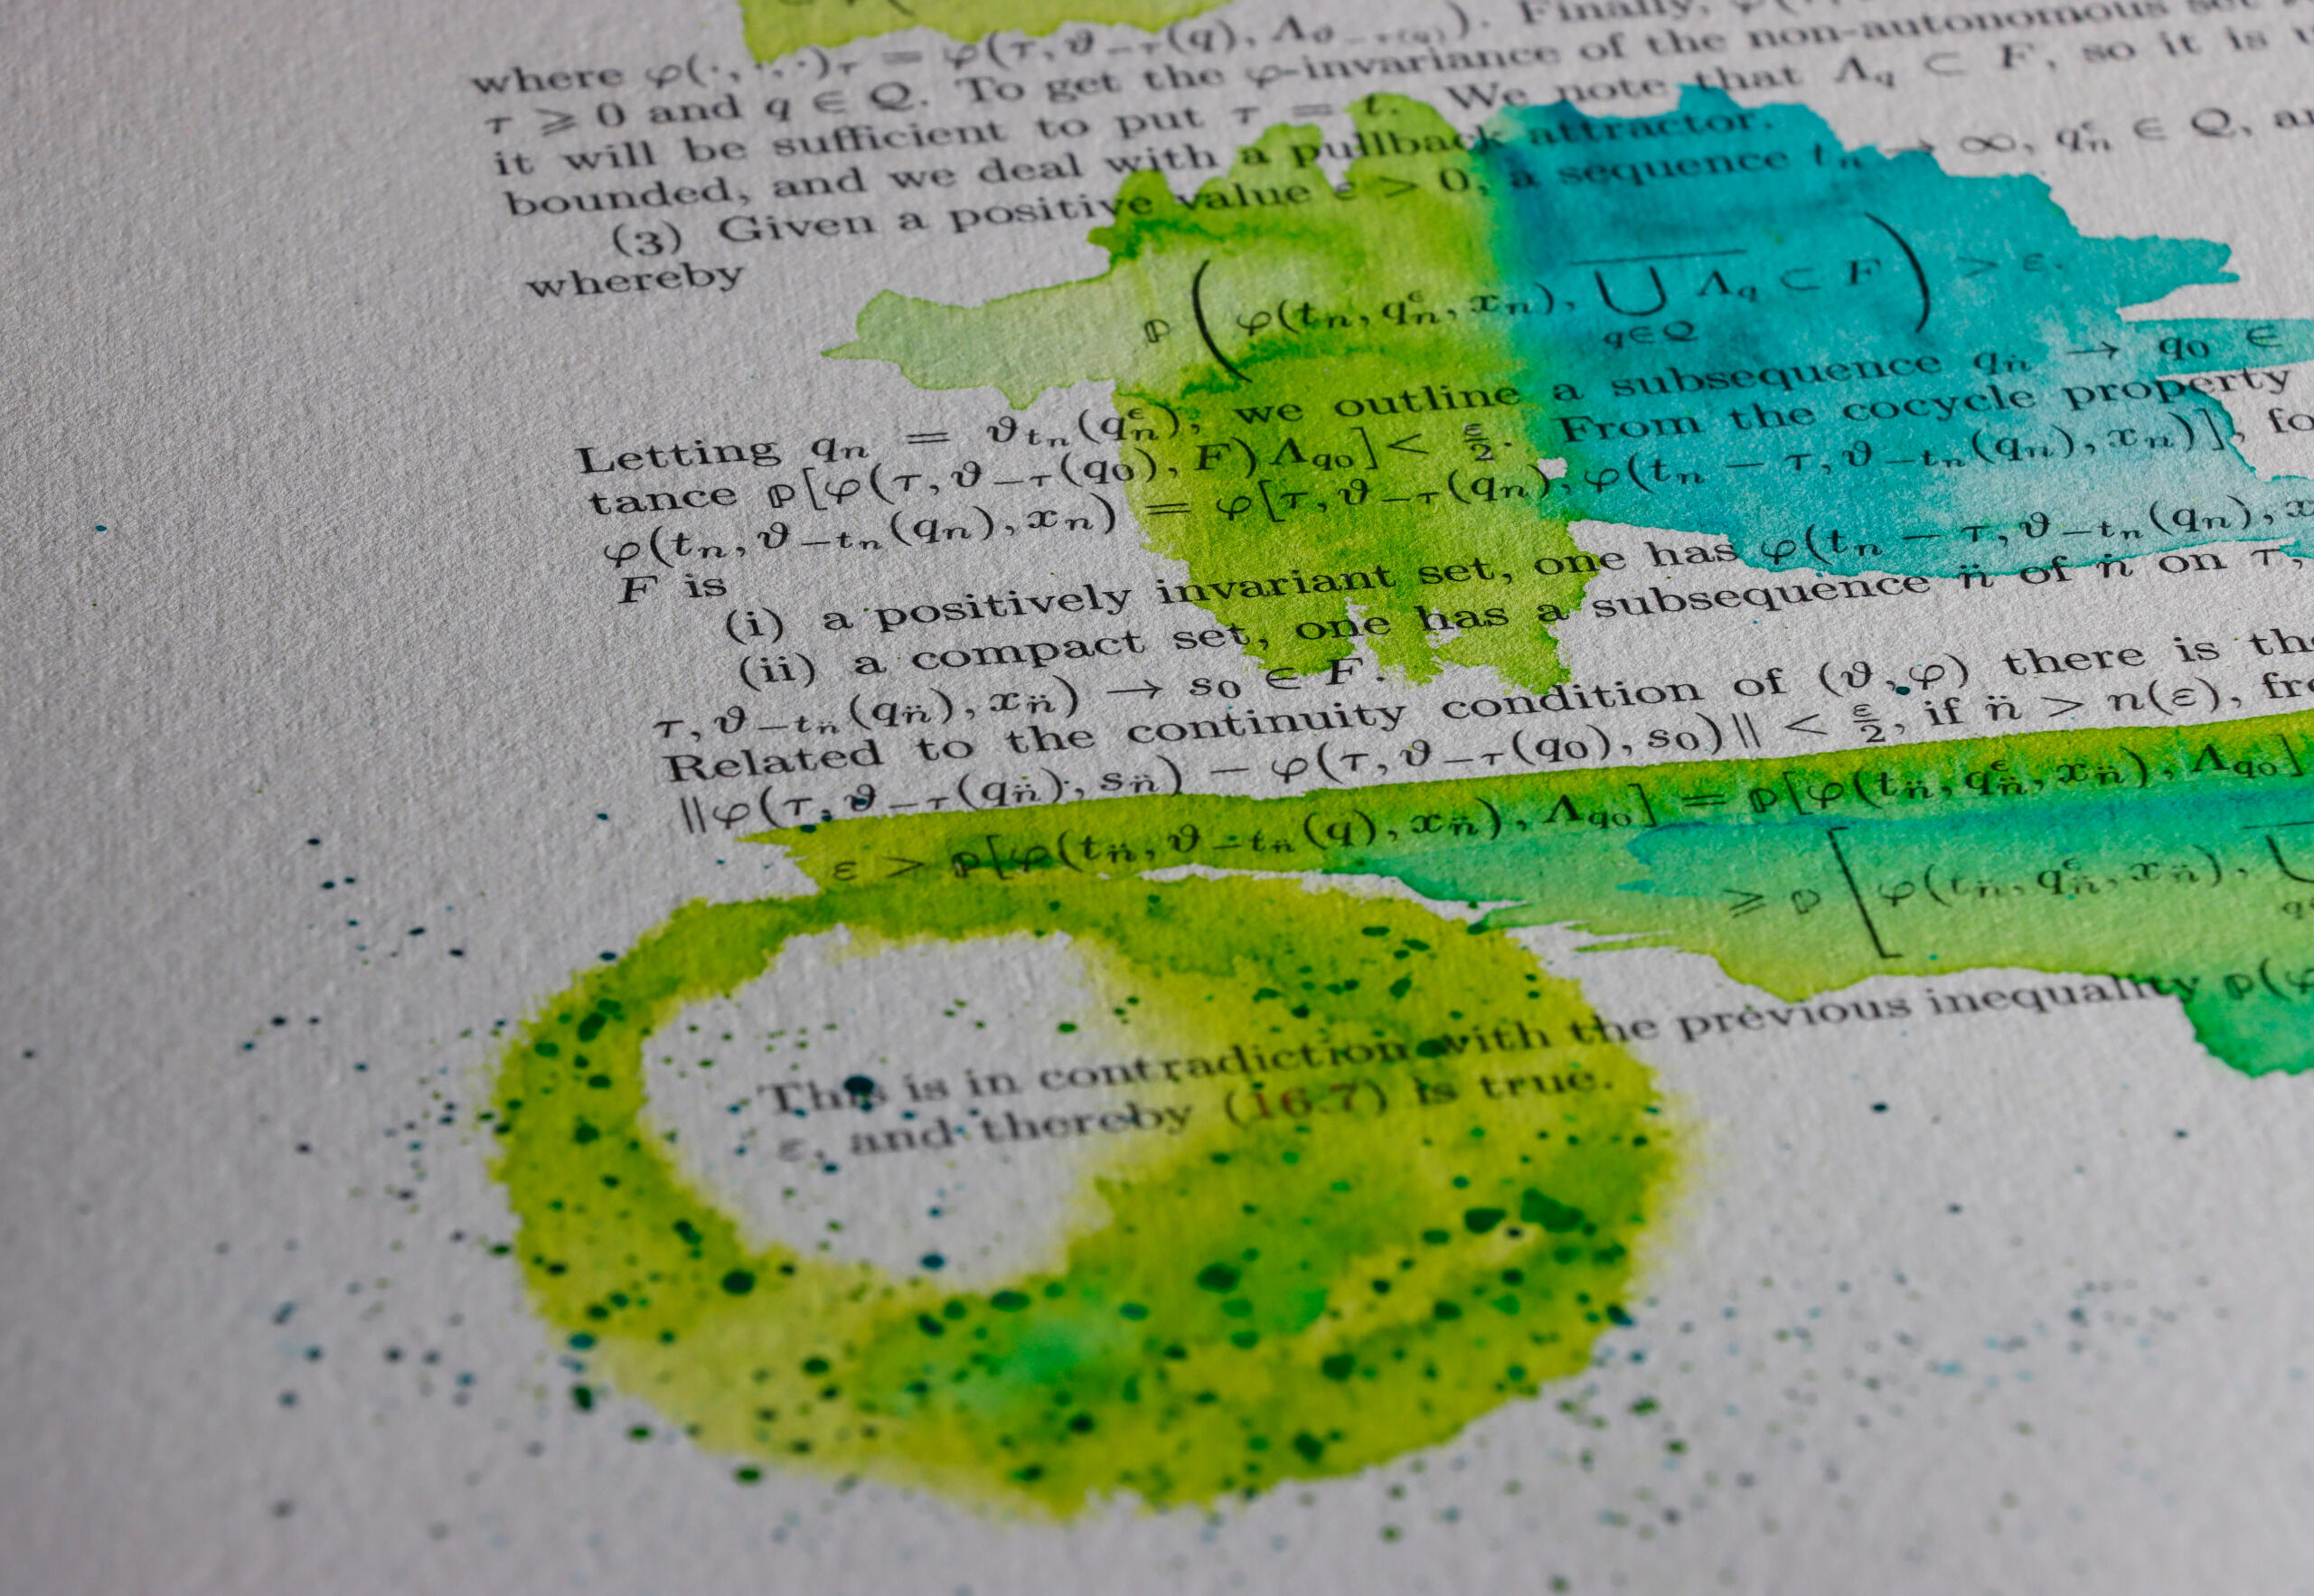 where φ(·, ·, ·)τ = φ(τ, ϑ−τ(q), Λϑ−τ(q)). Finally,
τ ⩾ 0 and q ∈ Q. To get the φ-invariance of the non-autonomous set
it will be sufficient to put τ = t. We note that Λq ⊂ F, so it is
bounded, and we deal with a pullback attractor.
(3) Given a positive value ε > 0, a sequence tn → ∞, qnϵ ∈ Q,
whereby
ℙ ( φ(tn, qnϵ, xn), ⋃q∈Q Λq ⊂ F ) > ε.
Letting qn = ϑtn(qnϵ), we outline a subsequence qṅ → q0 ∈
tance ℙ[φ(τ, ϑ−τ(q0), F)Λq0] < ε/2. From the cocycle property
φ(tn, ϑ−tn(qn), xn) = φ[τ, ϑ−τ(qn), φ(tn − τ, ϑ−tn(qn), xn)],
F is
(i) a positively invariant set, one has φ(tn − τ, ϑ−tn(qn),
(ii) a compact set, one has a subsequence n̈ of ṅ on τ,
τ, ϑ−tn̈(qn̈), xn̈) → s0 ∈ F.
Related to the continuity condition of (ϑ, φ) there is
∥φ(τ, ϑ−τ(qn̈), sn̈) − φ(τ, ϑ−τ(q0), s0)∥ < ε/2, if n̈ > n(ε),
ε > ℙ[φ(tn̈, ϑ−tn̈(q), xn̈), Λq0] = ℙ[φ(tn̈, qn̈ϵ, xn̈), Λq0]
⩾ ℙ [ φ(tn̈, qn̈ϵ, xn̈),
This is in contradiction with the previous inequality ℙ(φ
ε, and thereby (16.7) is true.